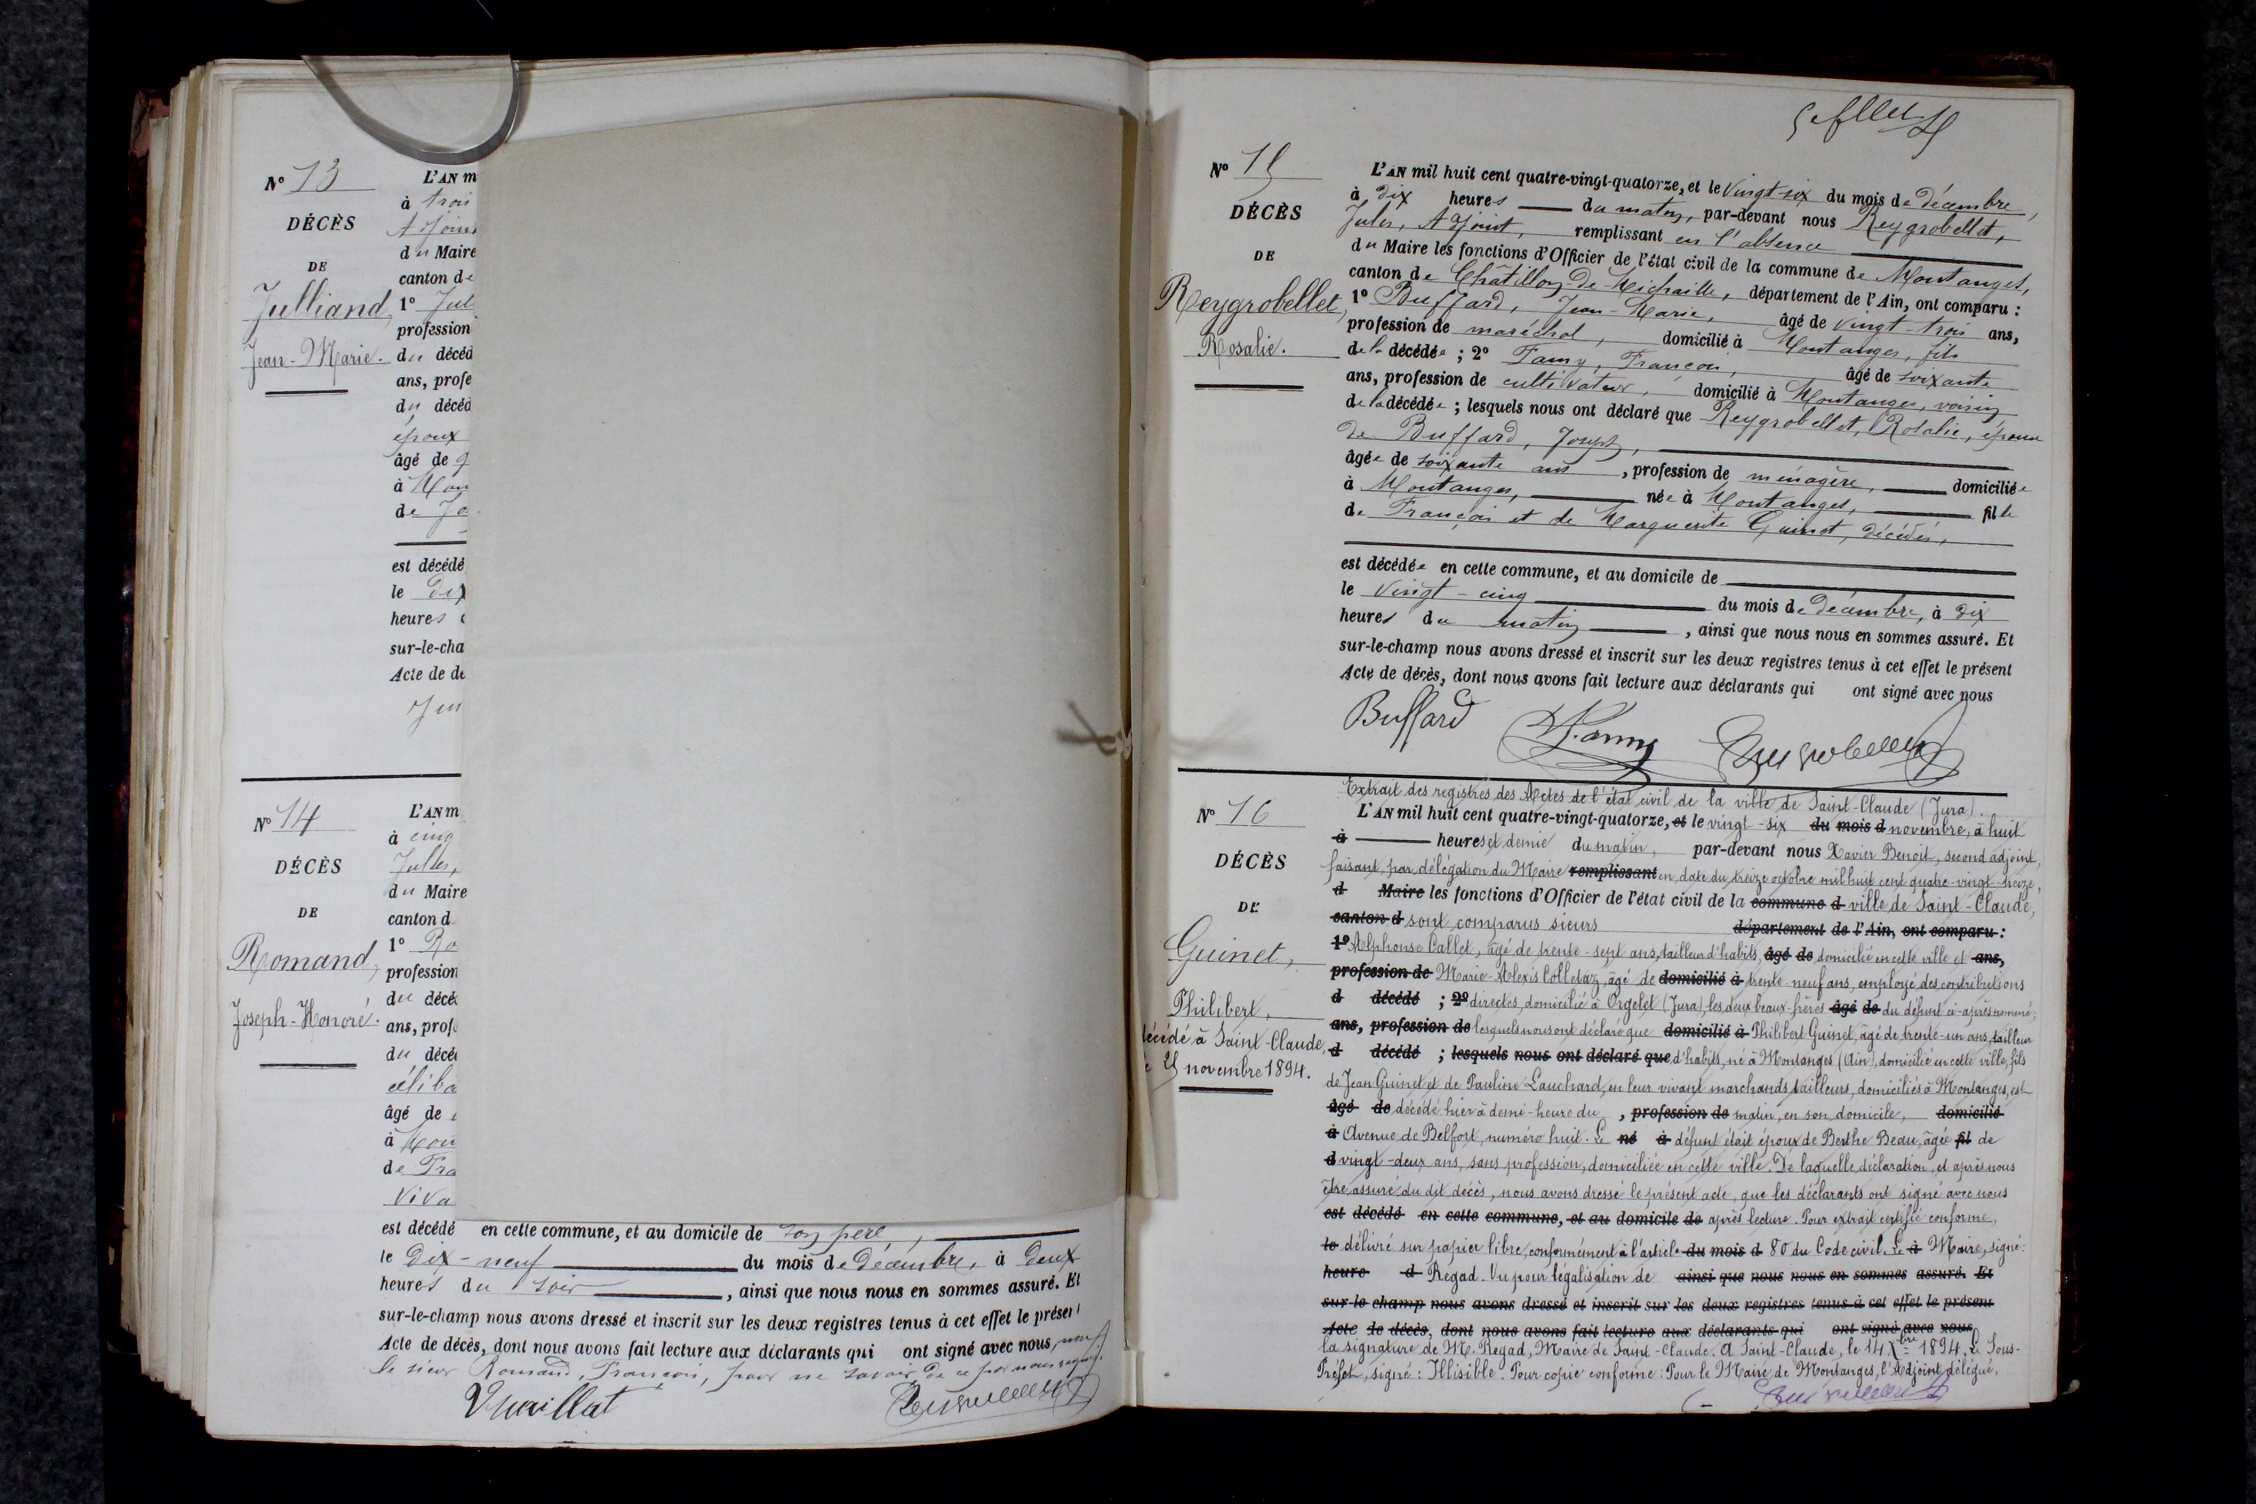 N° 13
DÉCÈS
DE
Julliand,
Jean-Marie.
L'AN m
à trois
Adjoin
du Maire
canton de
1° Jul
profession
du décéd
ans, profe
du décéd
époux
âgé de q
à Mon
de Jo
est décédé
le dix
heures d
sur-le-cha
Acte de dé
N° 14
DÉCÈS
DE
Romand,
Joseph-Honoré.
L'AN m
à cinq
Jules,
du Maire
canton d
1° Ro
profession
du décé
ans, prof
du décé
céliba
âgé de
à Mon
de Fra
viva
est décédé en cette commune, et au domicile de son père,
le dix-neuf du mois de décembre, à deux
heures du soir, ainsi que nous nous en sommes assuré. Et
sur-le-champ nous avons dressé et inscrit sur les deux registres tenus à cet effet le présent
Acte de décès, dont nous avons fait lecture aux déclarants qui ont signé avec nous,
le sieur Romand, François, pour ne savoir, de ce par nous requis.
Vuaillat
N° 15
DÉCÈS
DE
Reygrobellet,
Rosalie.
L'AN mil huit cent quatre-vingt-quatorze, et le vingt-six du mois de décembre,
à dix heures du matin, par-devant nous Reygrobellet,
Jules, Adjoint, remplissant en l'absence
du Maire les fonctions d'Officier de l'état civil de la commune de Montanges,
canton de Châtillon-de-Michaille, département de l'Ain, ont comparu :
1° Buffard, Jean-Marie, âgé de vingt-trois ans,
profession de maréchal, domicilié à Montanges, fils
de la décédée ; 2° Famy, François, âgé de soixante
ans, profession de cultivateur, domicilié à Montanges, voisin
de la décédée ; lesquels nous ont déclaré que Reygrobellet, Rosalie, épouse
de Buffard, Joseph,
âgée de soixante ans, profession de ménagère, domiciliée
à Montanges, née à Montanges, fille
de François et de Marguerite Guinet, décédés,
est décédée en cette commune, et au domicile de
le vingt-cinq du mois de décembre, à dix
heures du matin, ainsi que nous nous en sommes assuré. Et
sur-le-champ nous avons dressé et inscrit sur les deux registres tenus à cet effet le présent
Acte de décès, dont nous avons fait lecture aux déclarants qui ont signé avec nous
Buffard F. Famy Reygrobellet
N° 16
DÉCÈS
DE
Guinet,
Philibert,
décédé à Saint-Claude,
25 novembre 1894.
Extrait des registres des Actes de l'état civil de la ville de Saint-Claude (Jura).
L'AN mil huit cent quatre-vingt-quatorze, et le vingt-six du mois d novembre, à huit
à heures et demie du matin, par-devant nous Xavier Benoit, second adjoint,
faisant, par délégation du Maire remplissant en date du treize octobre mil huit cent quatre-vingt-treize,
d Maire les fonctions d'Officier de l'état civil de la commune d ville de Saint-Claude,
canton d sont comparus sieurs département de l'Ain, ont comparu :
1° Alphonse Callet, âgé de trente-sept ans, tailleur d'habits, âgé de domicilié en cette ville, et ans,
profession de Marie-Alexis Colletaz, âgé de domicilié à trente-neuf ans, employé des contributions
d décédé ; 2° directes, domicilié à Orgelet (Jura), les deux beaux-frères âgé de du défunt ci-après nommé;
ans, profession de lesquels nous ont déclaré que domicilié à Philibert Guinet, âgé de trente-un ans, tailleur
d décédé ; lesquels nous ont déclaré que d'habits, né à Montanges (Ain), domicilié en cette ville, fils
de Jean Guinet et de Pauline Lauchard, en leur vivant marchands tailleurs, domiciliés à Montanges, est
âgé de décédé hier à demi-heure du , profession de matin, en son domicile, domicilié
à Avenue de Belfort, numéro huit. Le né à défunt était époux de Berthe Bedu, âgée fil de
d vingt-deux ans, sans profession, domiciliée en cette ville. De laquelle déclaration, et après nous
être assuré du dit décès, nous avons dressé le présent acte, que les déclarants ont signé avec nous
est décédé en cette commune, et au domicile de après lecture. Pour extrait certifié conforme,
le délivré sur papier libre, conformément à l'article du mois d 80 du Code civil. Le à Maire, signé:
heure d Regad. Vu pour légalisation de ainsi que nous nous en sommes assuré. Et
sur-le-champ nous avons dressé et inscrit sur les deux registres tenus à cet effet le présent
Acte de décès, dont nous avons fait lecture aux déclarants qui ont signé avec nous
la signature de M. Regad, Maire de Saint-Claude. A Saint-Claude, le 14 Xbre 1894. Le Sous-
Préfet, signé: Illisible. Pour copie conforme: Pour le Maire de Montanges, l'Adjoint délégué,